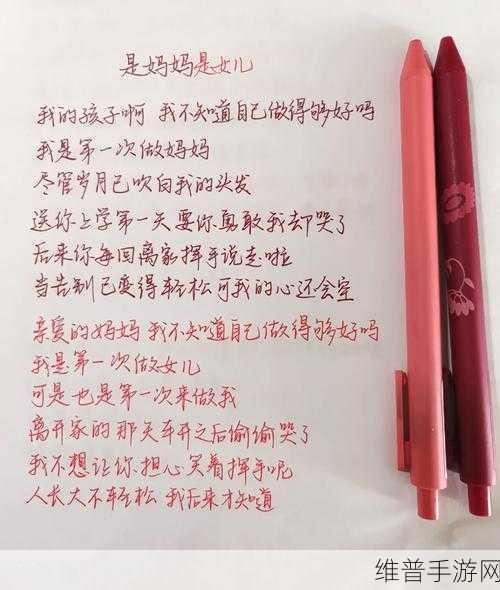 是妈妈是女儿
我的孩子啊 我不知道自己做得够好吗
我是第一次做妈妈
尽管岁月已吹白我的头发
送你上学第一天要你勇敢我却哭了
后来你每回离家挥手说走啦
当告别已变得轻松可我的心还会空
亲爱的妈妈 我不知道自己做得够好吗
我是第一次做女儿
可是也是第一次来做我
离开家的那天车开之后偷偷哭了
我不想让你担心笑着挥手呢
人长大不轻松 我后来才知道
维普手游网